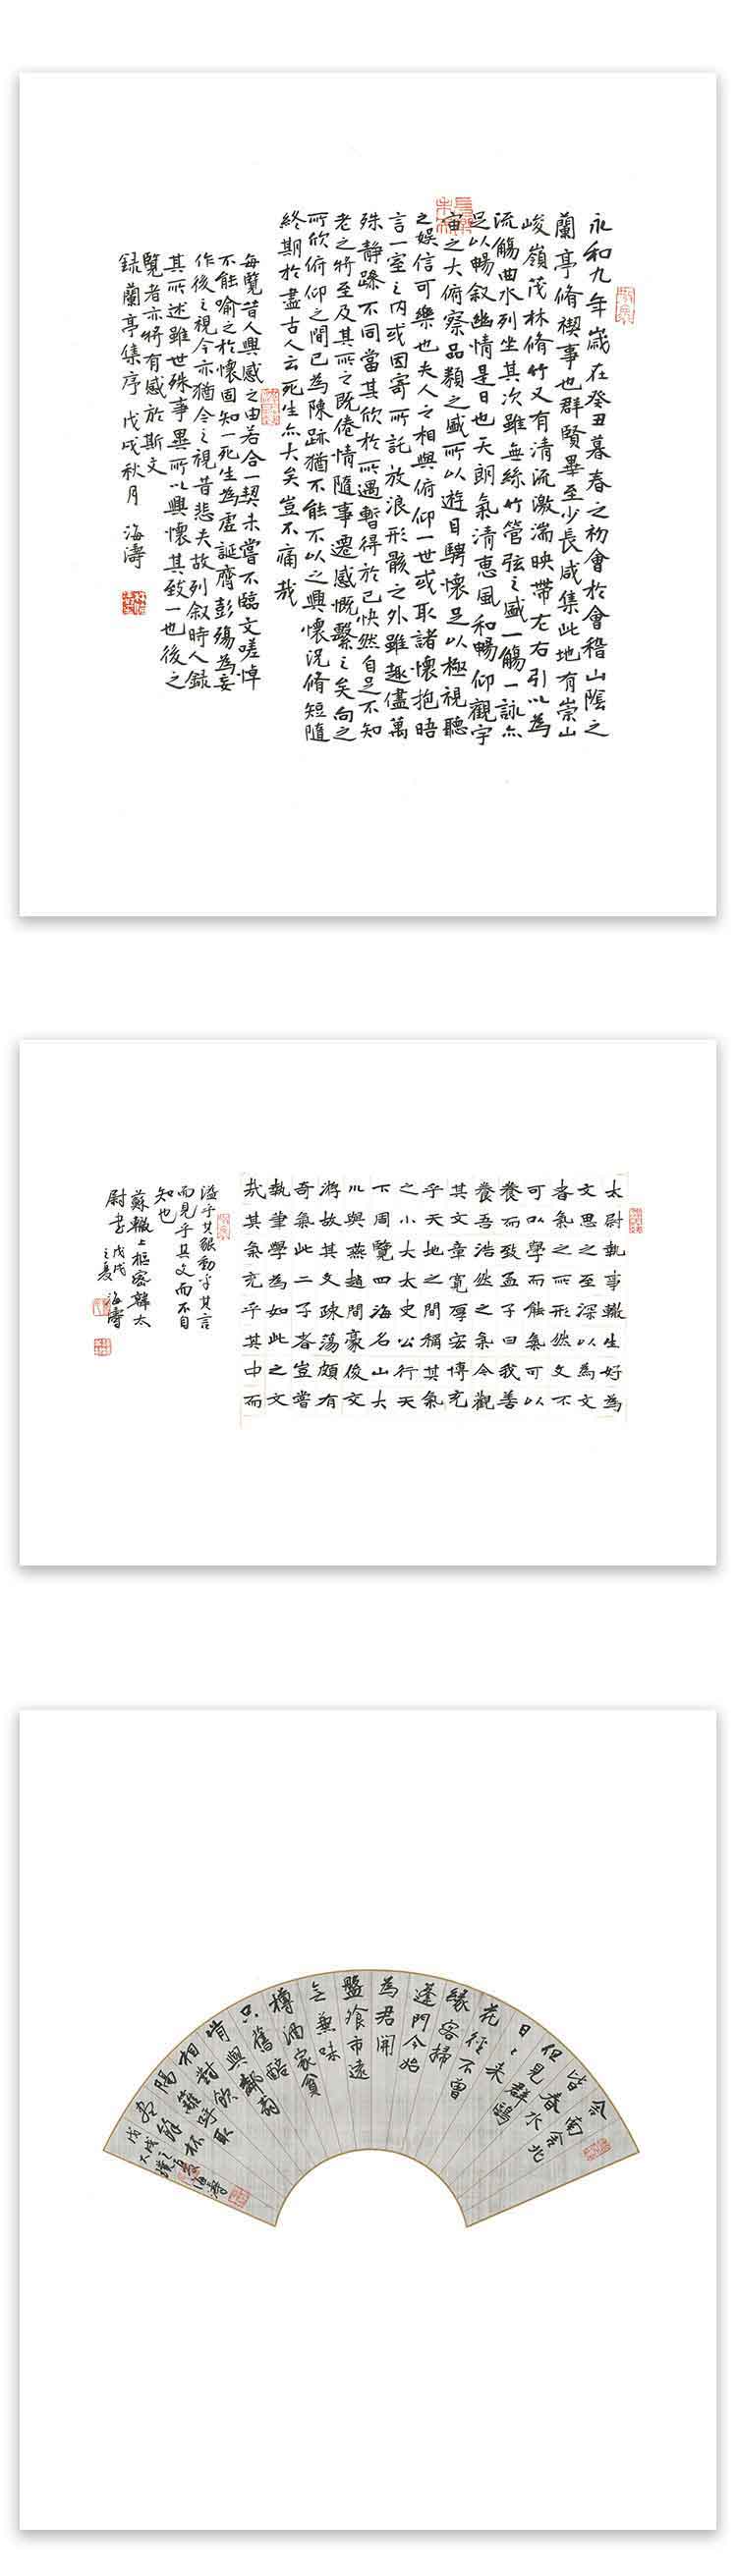 永和九年歲在癸丑暮春之初會於會稽山陰之
蘭亭脩禊事也群賢畢至少長咸集此地有崇山
峻嶺茂林脩竹又有清流激湍映帶左右引以為
流觴曲水列坐其次雖無絲竹管弦之盛一觴一詠亦
足以暢叙幽情是日也天朗氣清惠風和暢仰觀宇
宙之大俯察品類之盛所以遊目騁懷足以極視聽
之娛信可樂也夫人之相與俯仰一世或取諸懷抱晤
言一室之内或因寄所託放浪形骸之外雖趣儘萬
殊靜躁不同當其欣於所遇暫得於己快然自足不知
老之將至及其所之既倦情隨事遷感慨繫之矣向之
所欣俯仰之間已為陳跡猶不能不以之興懷況脩短隨
終期於盡古人云死生亦大矣豈不痛哉
每覽昔人興感之由若合一契未嘗不臨文嗟悼
不能喻之於懷固知一死生為虛誕齊彭殤為妄
作後之視今亦猶今之視昔悲夫故列叙時人錄
其所述雖世殊事異所以興懷其致一也後之
覽者亦將有感於斯文
録蘭亭集序 戊戌秋月 海濤
太尉執事轍生好為
文思之至深以為文
者氣之所形然文不
可以學而能氣可以
養而致孟子曰我善
養吾浩然之氣今觀
其文章寬厚宏博充
乎天地之間稱其氣
之小大太史公行天
下周覽四海名山大
川與燕趙間豪俊交
游故其文疎蕩頗有
奇氣此二子者豈嘗
執筆學為如此之文
哉其氣充乎其中而
溢乎其貌動乎其言
而見乎其文而不自
知也
蘇轍上樞密韓太
尉書 戊戌之夏 海濤
舍南舍北
皆春水
但見群鷗
日日来
花徑不曾
緣客掃
蓬門今始
為君開
盤飧市遠
無兼味
樽酒家貧
只舊醅
肯與鄰翁
相對飲
隔籬呼取
盡餘杯
戊戌之夏海濤